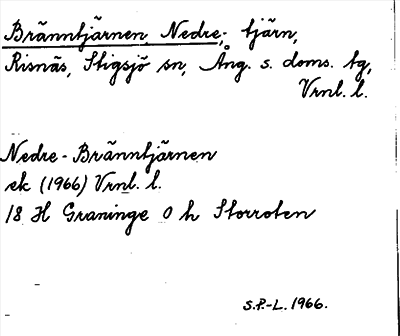 Bränntjärnen, Nedre; tjärn,
Risnäs, Stigsjö sn, Ång. s. doms. tg,
Vrnl. l.
Nedre-Bränntjärnen
ek (1966) Vrnl. l.
18 H Graninge 0 h Storroten
S.P.-L. 1966.